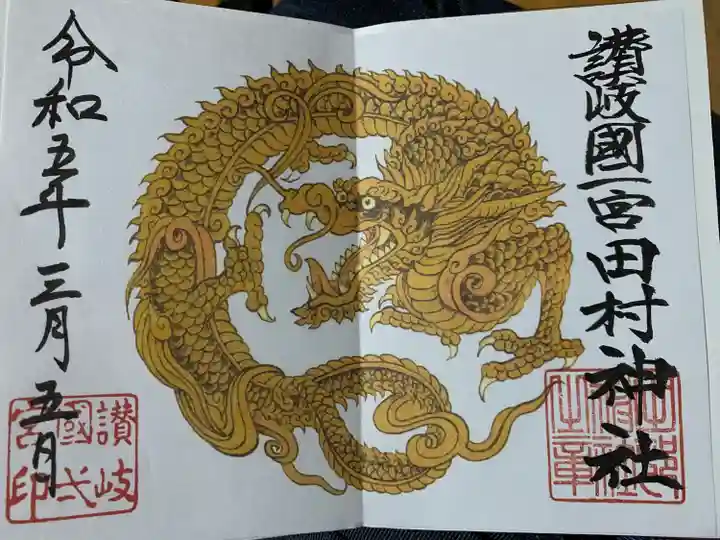 讃岐國一宮田村神社
令和五年三月五日
讃岐
國弌
宮印